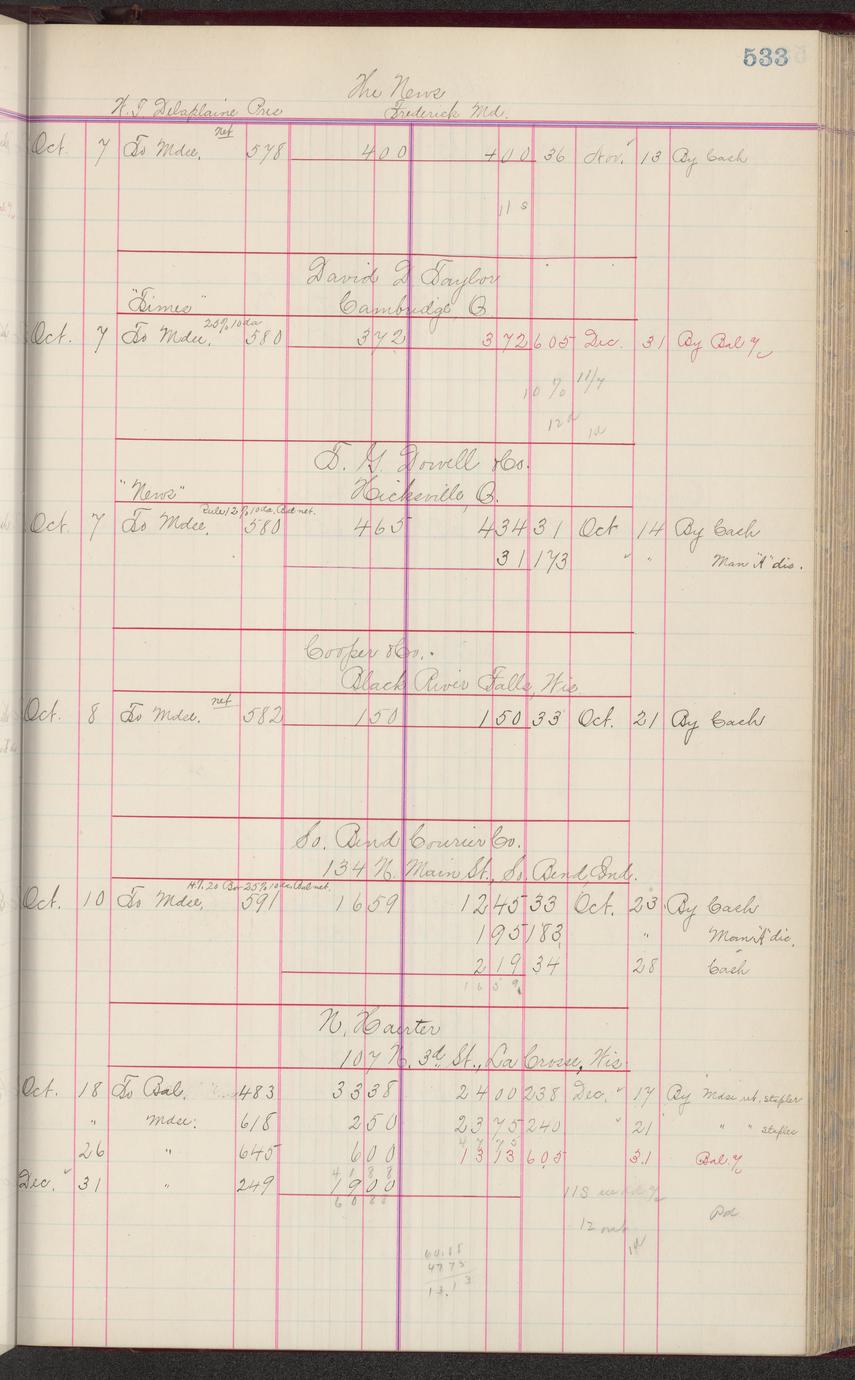 533
The News
W. T. Delaplaine Pres Frederick Md.
net
Oct. 7 To Mdse. 578 400 400 36 Nov. 13 By Cash
11 s
David D. Taylor
"Times" Cambridge, O.
25% 10 da
Oct. 7 To Mdse. 580 372 372 605 Dec. 31 By Bal
10 % 11/7
12
T. G. Dowell & Co.
"News" Hicksville, O.
10 da, Bal net.
Oct. 7 To Mdse. 580 465 434 31 Oct 14 By Cash
31 173 " " Man "A" dis.
Cooper & Co.
Black River Falls, Wis
net
Oct. 8 To Mdse. 582 150 150 33 Oct. 21 By Cash
So. Bend Courier Co.
134 N. Main St., So. Bend, Ind.
25% 10 da, Bal net.
Oct. 10 To Mdse. 591 1659 1245 33 Oct. 23 By Cash
195 183 " Man "A" dis.
219 34 28 Cash
1659
N. Hairter
107 N. 3d St., La Crosse, Wis
Oct. 18 To Bal. 483 3338 2400 238 Dec. " 17 By Mdse ret. stapler
" Mdse. 618 250 2375 240 " 21 " " stapler
4775
26 " 645 600 1313 605 31 Bal
4188
Dec. " 31 " 249 1900
6088
Pd
12
60.88
47 75
13.13